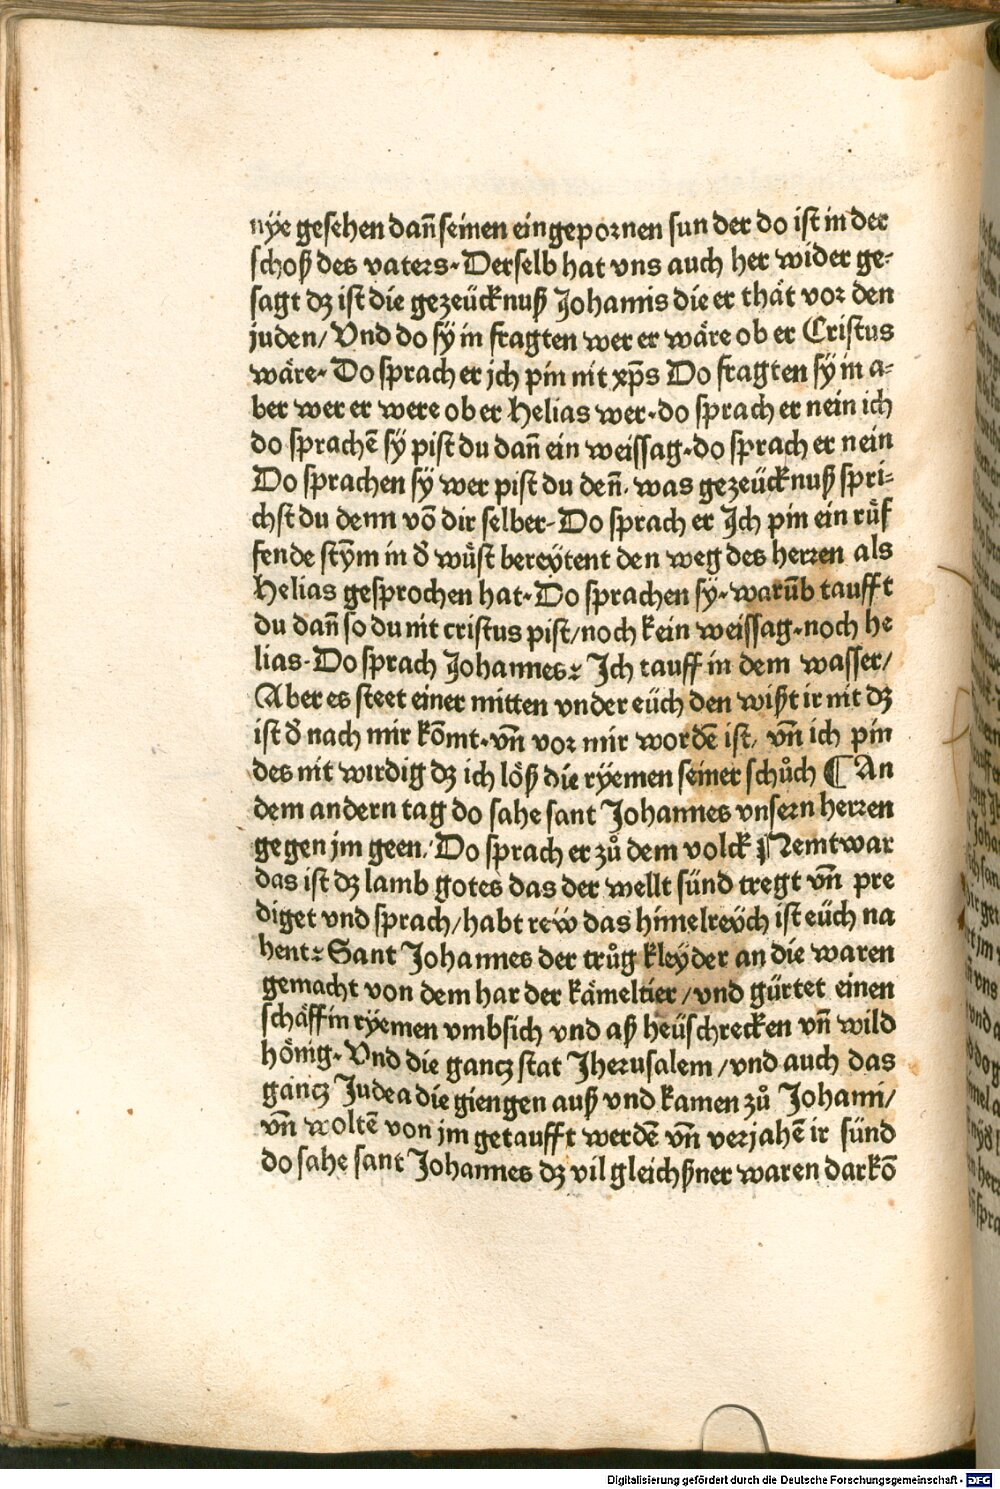 nye gesehen dañ seinen eingepornen sun der do ist in der
schoß des vaters. Derselb hat vns auch her wider ge-
sagt dz ist die gezeücknuß Johannis die er thät vor den
juden/ Vnd do sÿ in fragten wer er wäre ob er Cristus
wäre. Do sprach er jch pin nit xp̄s Do fragten sÿ in a-
ber wer er were ob er Helias wer. do sprach er nein ich
do sprachē sÿ pist du dañ ein weissag. do sprach er nein
Do sprachen sÿ wer pist du deñ. was gezeücknuß spri-
chst du denn võ dir selber. Do sprach er Jch pin ein rüf
fende stÿm in d' wüst bereÿtent den weg des herren als
Helias gesprochen hat. Do sprachen sÿ. warūb taufft
du dañ so du nit cristus pist/ noch kein weissag. noch he
lias. Do sprach Johannes: Jch tauff in dem wasser/
Aber es steet einer mitten vnder eüch den wißt ir nit dz
ist d' nach mir kōmt. vñ vor mir wordē ist/ vñ ich pin
des nit wirdig dz ich löß die rÿemen seiner schůch ¶ An
dem andern tag do sahe sant Johannes vnsern herren
gegen jm geen. Do sprach er zů dem volck Nemt war
das ist dz lamb gotes das der wellt sünd tregt vñ pre
diget vnd sprach/ habt rew das himelreÿch ist eüch na
hent: Sant Johannes der trůg kleÿder an die waren
gemacht von dem har der kämeltier/ vnd gürtet einen
schäffin rÿemen vmb sich vnd aß heüschrecken vñ wild
hönig. Vnd die gancz stat Jherusalem/ vnd auch das
gancz Judea die giengen auß vnd kamen zů Johanni/
vñ woltē von jm getaufft werdē vñ verjahē ir sünd
do sahe sant Johannes dz vil gleichßner waren dar kō
Digitalisierung gefördert durch die Deutsche Forschungsgemeinschaft - DFG